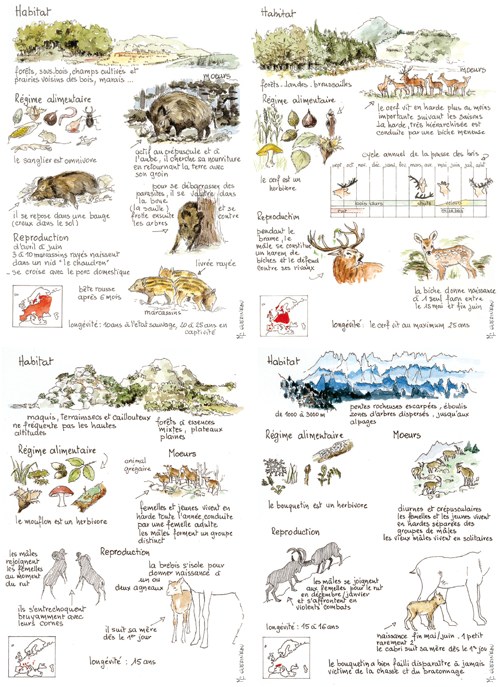 Habitat
forêts, sous-bois, champs cultivés et
prairies voisins des bois, marais ...
moeurs
Régime alimentaire
le sanglier est omnivore
actif au crépuscule et à
l'aube, il cherche sa nourriture
en retournant la terre avec
son groin
il se repose dans une bauge
(creux dans le sol)
pour se débarrasser des
parasites, il se vautre dans
la boue
(la souille)
et se
frotte ensuite
contre
les arbres
Reproduction
d'avril à juin
3 à 10 marcassins rayés naissent
dans un nid "le chaudron"
- se croise avec le porc domestique
livrée rayée
bête rousse
après 6 mois
marcassins
longévité: 10 ans à l'état sauvage, 20 à 25 ans en
captivité
Habitat
forêts. landes. broussailles
moeurs
Régime alimentaire
le cerf vit en harde plus ou moins
importante suivant les saisons
la harde, très hiérarchisée est
conduite par une biche meneuse
cycle annuel de la pousse des bois
sept. oct. nov. déc. jan. fév. mars avr. mai juin juil. août
bois durs
chute
rut
le cerf est un
herbivore
Reproduction
pendant le
brame, le
mâle se constitue
un harem de
biches et le défend
contre ses rivaux
la biche donne naissance
à 1 seul faon entre
le 15 mai et fin juin
longévité: le cerf vit au maximum 25 ans
Habitat
maquis, terrains secs et caillouteux
ne fréquente pas les hautes
altitudes
forêts d'essences
mixtes, plateaux
plaines
Régime alimentaire
animal
grégaire
Moeurs
le mouflon est un herbivore
femelles et jeunes vivent en
harde toute l'année, conduite
par une femelle adulte
les mâles forment un groupe
distinct
Reproduction
les mâles
rejoignent
les femelles
au moment
du rut
la brebis s'isole pour
donner naissance à
un ou
deux agneaux
ils s'entrechoquent
bruyamment avec
leurs cornes
il suit sa mère
dès le 1er jour
longévité: 15 ans
Habitat
de 1000 à 3000 m
pentes rocheuses escarpées, éboulis
zones d'arbres dispersés, jusqu'aux
alpages
Régime alimentaire
Moeurs
le bouquetin est un herbivore
diurnes et crépusculaires
les femelles et les jeunes vivent
en hardes séparées des
groupes de mâles
les vieux mâles vivent en solitaires
Reproduction
les mâles se joignent
aux femelles pour le rut
en décembre/janvier
et s'affrontent en
violents combats
longévité: 15 à 16 ans
naissance fin mai/juin. 1 petit
rarement 2
le cabri suit sa mère dès le 1er jour
le bouquetin a bien failli disparaître à jamais
victime de la chasse et du braconnage